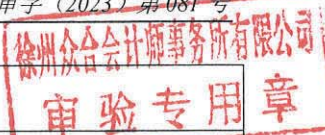 审字（2023）第081号
徐州众合会计师事务所有限公司
审验专用章